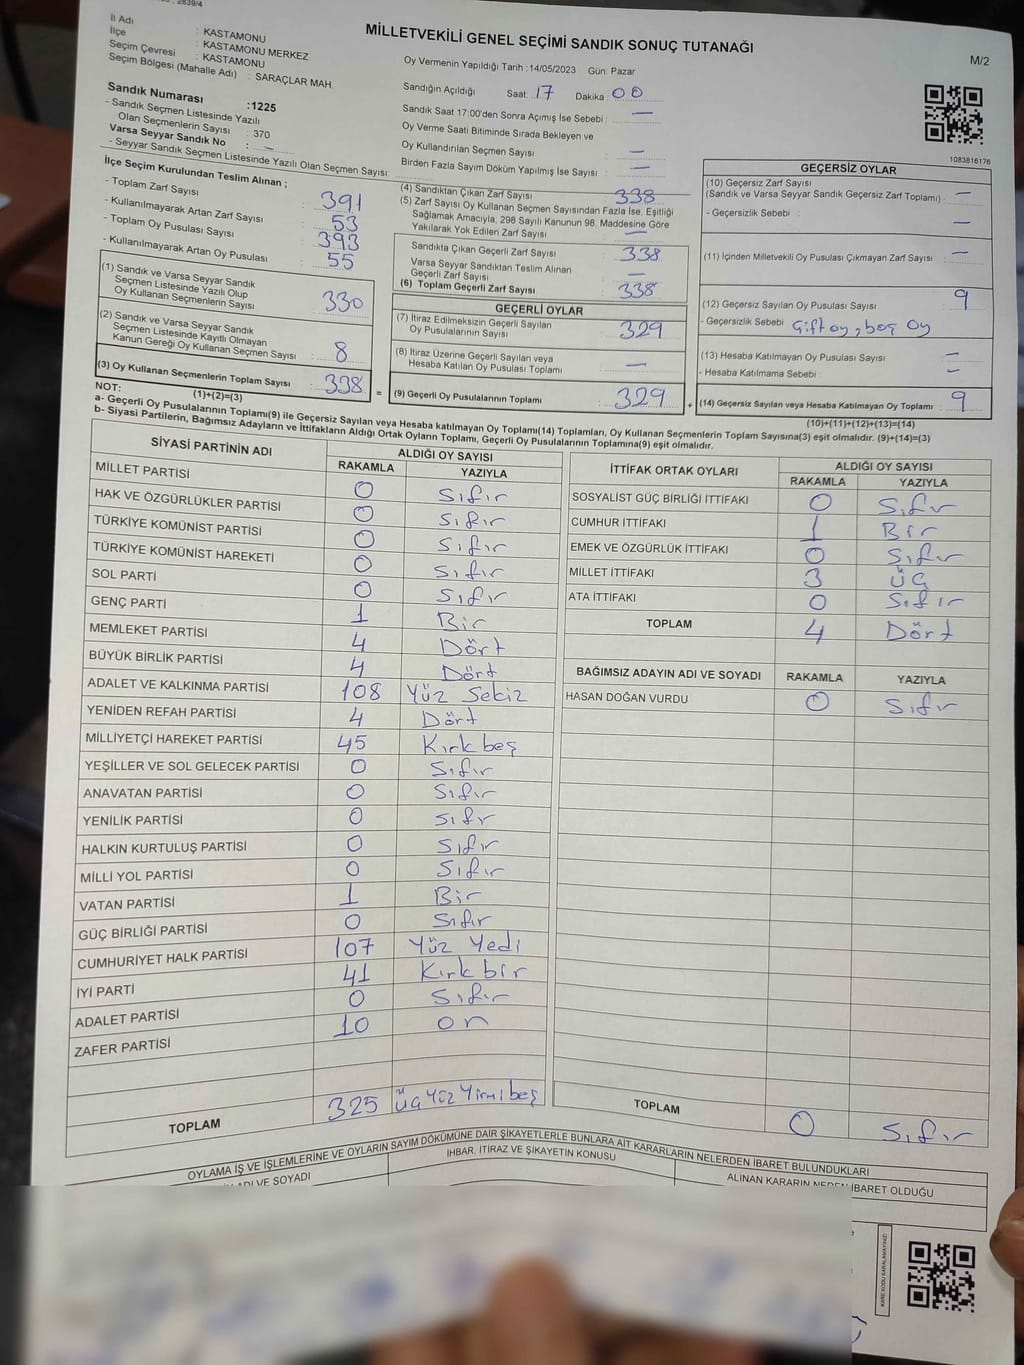 2839/4
MİLLETVEKİLİ GENEL SEÇİMİ SANDIK SONUÇ TUTANAĞI
M/2
İl Adı : KASTAMONU
İlçe : KASTAMONU MERKEZ
Seçim Çevresi : KASTAMONU
Seçim Bölgesi (Mahalle Adı) : SARAÇLAR MAH.
Oy Vermenin Yapıldığı Tarih :14/05/2023 Gün: Pazar
Sandığın Açıldığı Saat: 17 Dakika: 00
Sandık Saat 17:00'den Sonra Açımış İse Sebebi : —
Oy Verme Saati Bitiminde Sırada Bekleyen ve
Oy Kullandırılan Seçmen Sayısı : —
Birden Fazla Sayım Döküm Yapılmış İse Sayısı : —
Sandık Numarası :1225
- Sandık Seçmen Listesinde Yazılı
Olan Seçmenlerin Sayısı : 370
Varsa Seyyar Sandık No : —
- Seyyar Sandık Seçmen Listesinde Yazılı Olan Seçmen Sayısı:
İlçe Seçim Kurulundan Teslim Alınan ;
- Toplam Zarf Sayısı : 391
- Kullanılmayarak Artan Zarf Sayısı : 53
- Toplam Oy Pusulası Sayısı : 393
- Kullanılmayarak Artan Oy Pusulası : 55
(1) Sandık ve Varsa Seyyar Sandık
Seçmen Listesinde Yazılı Olup
Oy Kullanan Seçmenlerin Sayısı : 330
(2) Sandık ve Varsa Seyyar Sandık
Seçmen Listesinde Kayıtlı Olmayan
Kanun Gereği Oy Kullanan Seçmen Sayısı : 8
(3) Oy Kullanan Seçmenlerin Toplam Sayısı : 338
(1)+(2)=(3)
(4) Sandıktan Çıkan Zarf Sayısı : 338
(5) Zarf Sayısı Oy Kullanan Seçmen Sayısından Fazla İse, Eşitliği
Sağlamak Amacıyla, 298 Sayılı Kanunun 98. Maddesine Göre
Yakılarak Yok Edilen Zarf Sayısı : —
Sandıkta Çıkan Geçerli Zarf Sayısı : 338
Varsa Seyyar Sandıktan Teslim Alınan
Geçerli Zarf Sayısı : —
(6) Toplam Geçerli Zarf Sayısı : 338
GEÇERLİ OYLAR
(7) İtiraz Edilmeksizin Geçerli Sayılan
Oy Pusulalarının Sayısı : 329
(8) İtiraz Üzerine Geçerli Sayılan veya
Hesaba Katılan Oy Pusulası Toplamı : —
= (9) Geçerli Oy Pusulalarının Toplamı : 329 +
1083816176
GEÇERSİZ OYLAR
(10) Geçersiz Zarf Sayısı
(Sandık ve Varsa Seyyar Sandık Geçersiz Zarf Toplamı) : —
- Geçersizlik Sebebi : —
(11) İçinden Milletvekili Oy Pusulası Çıkmayan Zarf Sayısı : —
(12) Geçersiz Sayılan Oy Pusulası Sayısı : 9
- Geçersizlik Sebebi : Çift oy, boş oy
(13) Hesaba Katılmayan Oy Pusulası Sayısı : —
- Hesaba Katılmama Sebebi : —
(14) Geçersiz Sayılan veya Hesaba Katılmayan Oy Toplamı : 9
(10)+(11)+(12)+(13)=(14)
NOT:
a- Geçerli Oy Pusulalarının Toplamı(9) ile Geçersiz Sayılan veya Hesaba katılmayan Oy Toplamı(14) Toplamları, Oy Kullanan Seçmenlerin Toplam Sayısına(3) eşit olmalıdır. (9)+(14)=(3)
b- Siyasi Partilerin, Bağımsız Adayların ve İttifakların Aldığı Ortak Oyların Toplamı, Geçerli Oy Pusulalarının Toplamına(9) eşit olmalıdır.
SİYASİ PARTİNİN ADI ALDIĞI OY SAYISI
RAKAMLA YAZIYLA
MİLLET PARTİSİ 0 Sıfır
HAK VE ÖZGÜRLÜKLER PARTİSİ 0 Sıfır
TÜRKİYE KOMÜNİST PARTİSİ 0 Sıfır
TÜRKİYE KOMÜNİST HAREKETİ 0 Sıfır
SOL PARTİ 0 Sıfır
GENÇ PARTİ 1 Bir
MEMLEKET PARTİSİ 4 Dört
BÜYÜK BİRLİK PARTİSİ 4 Dört
ADALET VE KALKINMA PARTİSİ 108 Yüz Sekiz
YENİDEN REFAH PARTİSİ 4 Dört
MİLLİYETÇİ HAREKET PARTİSİ 45 Kırk beş
YEŞİLLER VE SOL GELECEK PARTİSİ 0 Sıfır
ANAVATAN PARTİSİ 0 Sıfır
YENİLİK PARTİSİ 0 Sıfır
HALKIN KURTULUŞ PARTİSİ 0 Sıfır
MİLLİ YOL PARTİSİ 0 Sıfır
VATAN PARTİSİ 1 Bir
GÜÇ BİRLİĞİ PARTİSİ 0 Sıfır
CUMHURİYET HALK PARTİSİ 107 Yüz Yedi
İYİ PARTİ 41 Kırk bir
ADALET PARTİSİ 0 Sıfır
ZAFER PARTİSİ 10 on
TOPLAM 325 Üç Yüz Yirmi beş
İTTİFAK ORTAK OYLARI ALDIĞI OY SAYISI
RAKAMLA YAZIYLA
SOSYALİST GÜÇ BİRLİĞİ İTTİFAKI 0 Sıfır
CUMHUR İTTİFAKI 1 Bir
EMEK VE ÖZGÜRLÜK İTTİFAKI 0 Sıfır
MİLLET İTTİFAKI 3 Üç
ATA İTTİFAKI 0 Sıfır
TOPLAM 4 Dört
BAĞIMSIZ ADAYIN ADI VE SOYADI RAKAMLA YAZIYLA
HASAN DOĞAN VURDU 0 Sıfır
TOPLAM 0 Sıfır
OYLAMA İŞ VE İŞLEMLERİNE VE OYLARIN SAYIM DÖKÜMÜNE DAİR ŞİKAYETLERLE BUNLARA AİT KARARLARIN NELERDEN İBARET BULUNDUKLARI
ADI VE SOYADI İHBAR, İTİRAZ VE ŞİKAYETİN KONUSU ALINAN KARARIN NEDEN İBARET OLDUĞU
KARE KODU KARALAMAYINIZ!